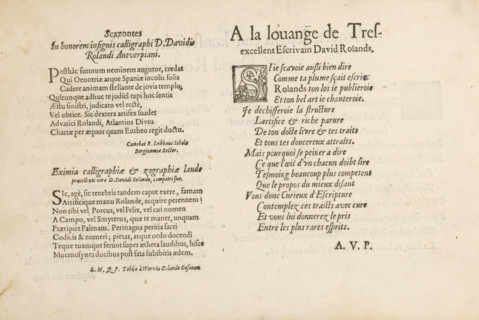 Scazontes
In honorem insignis calligraphi D. Davidis
Rolandi Antverpiani.
Posthâc futurum neminem auguror, credat
Qui Oenotriæ atque Spaniæ incolis solis
Cadere animam stellante de jovis templo,
Quicunque adhuc te judicat rapi hoc sentia
Æstu sinistri, judicato vel rectè,
Vel obtice. Sic dextera artifex suadet
Advatici Rolandi, Atlantios Divus
Chartæ per æquor quam Entheo regit ductu.
Canebat
Schola
Rector.
Eximia calligraphiæ & zographiæ laude
D. Davidis Rolando,
Sic, agè, sic tenebris tandem caput exere, famam
Artificique manu Rolande, acquire perennem:
Non tibi vel Porcus, vel Felix, vel cui nomen
A Campo, vel Smyterus, que te manet, unquam
Præripiet Palmam. Permagna petitia sacri
Codicis & numeri; pietas, atque ordo docendi
Teque tuamque serunt super æthera laudibus, hisce
Mnemosynes ducibus post fata subibitis ædem.
A la louange de Tres-
excellent Escrivain David Rolands,
Si ie sçavoie aussi bien dire
Comme ta plume sçait escrire
Rolands ton los ie publieroie
Et ton bel art ie chanteroie.
Je dechifferoie la structure
L'artifice & riche parure
De ton docte livre & tes traits
Et tous tes doucereux attraits.
Mais pourquoi se peiner a dire
Ce que l'œil d'un chacun doibt lire
Tesmoing beaucoup plus competent
Que le propos du mieux disant
Vous donc Curieux d'Escripture
Contemplez ces traicts avec cure
Et vous lui donnerez le pris
Entre les plus rares esprits.
A. V. P.